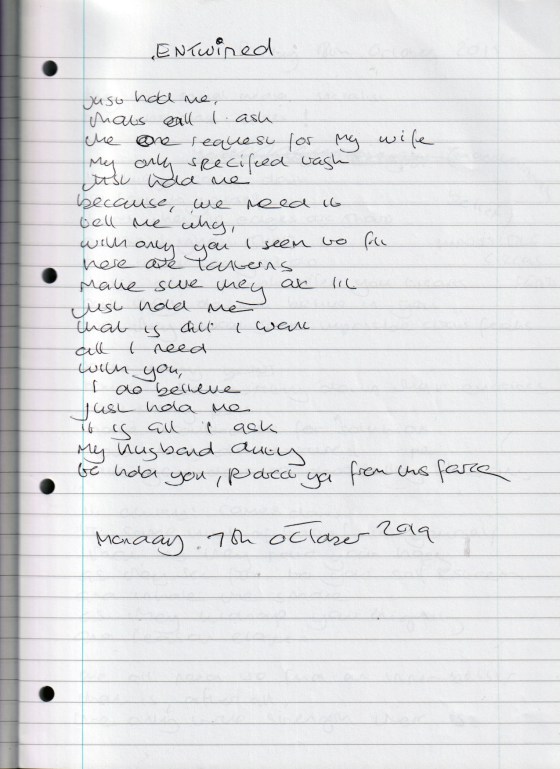 ENTWINED
just hold me,
thats all I ask
the one request for my wife
my only specified task
just hold me
because, we need it
tell me why,
with only you I seem to fit
here are lanterns
make sure they are lit
just hold me
that is all I want
all I need
with you,
I do believe
just hold me
it is all I ask
my husband duty
to hold you, protect ya from this farce
Monday 7th October 2019